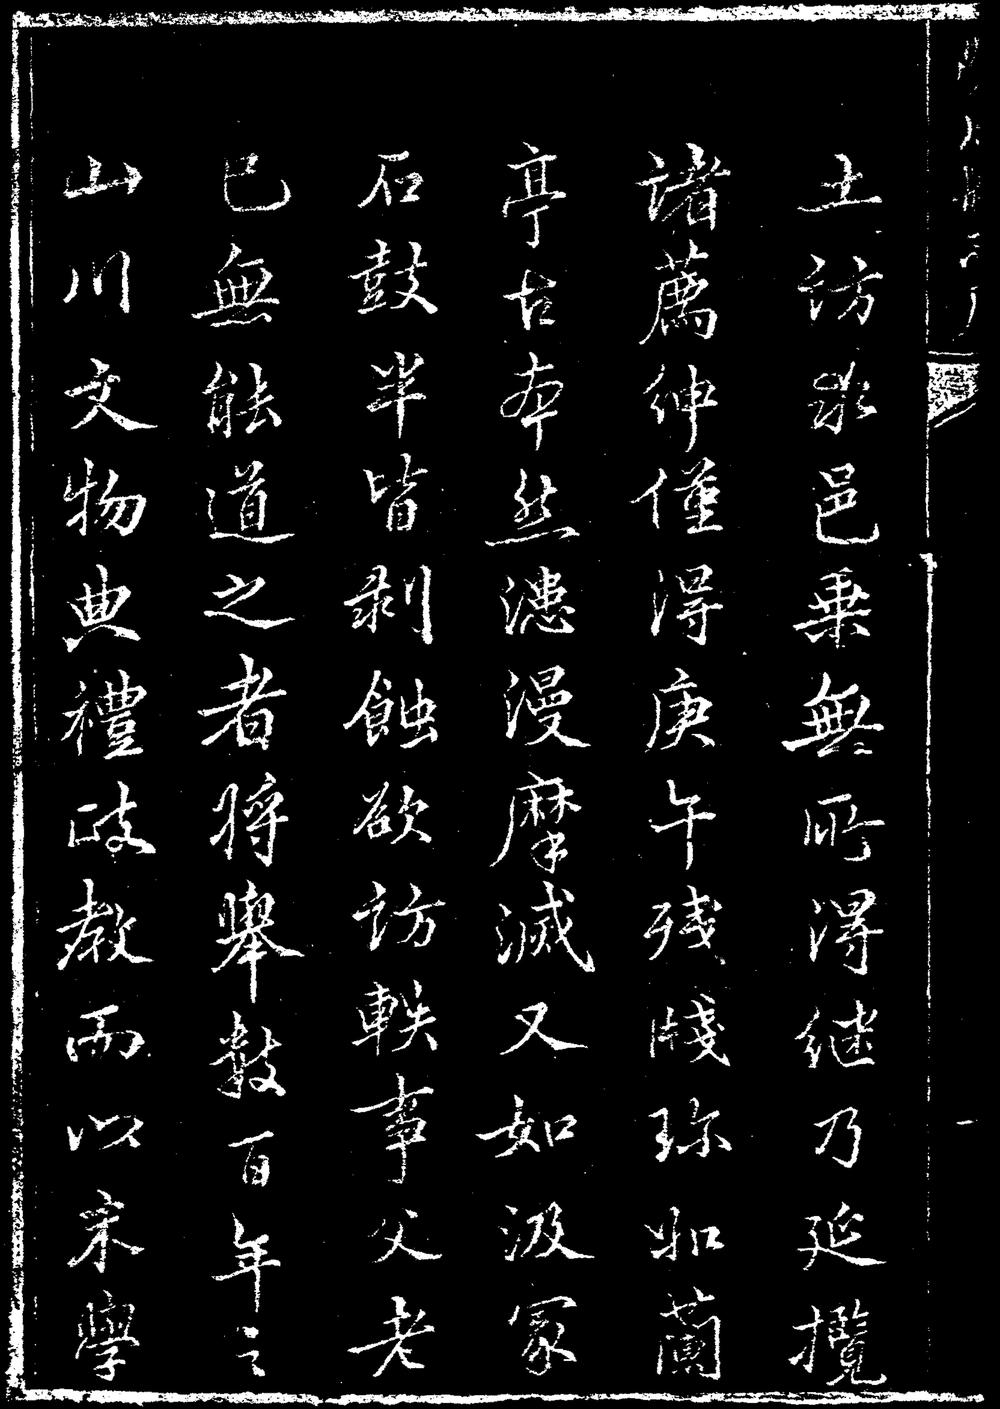 土訪求邑乗無所得继乃延攬
諸薦紳僅得庚午残牋珎如蘭
亭古本然漶漫摩滅又如汲冢
石鼓半皆剥蝕欲訪軼事父老
已無能道之者將舉數百年之
山川文物典禮政教而以宋學